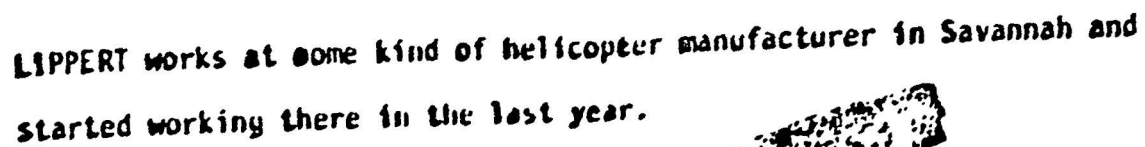 LIPPERT works at some kind of helicopter manufacturer in Savannah and
started working there in the last year.